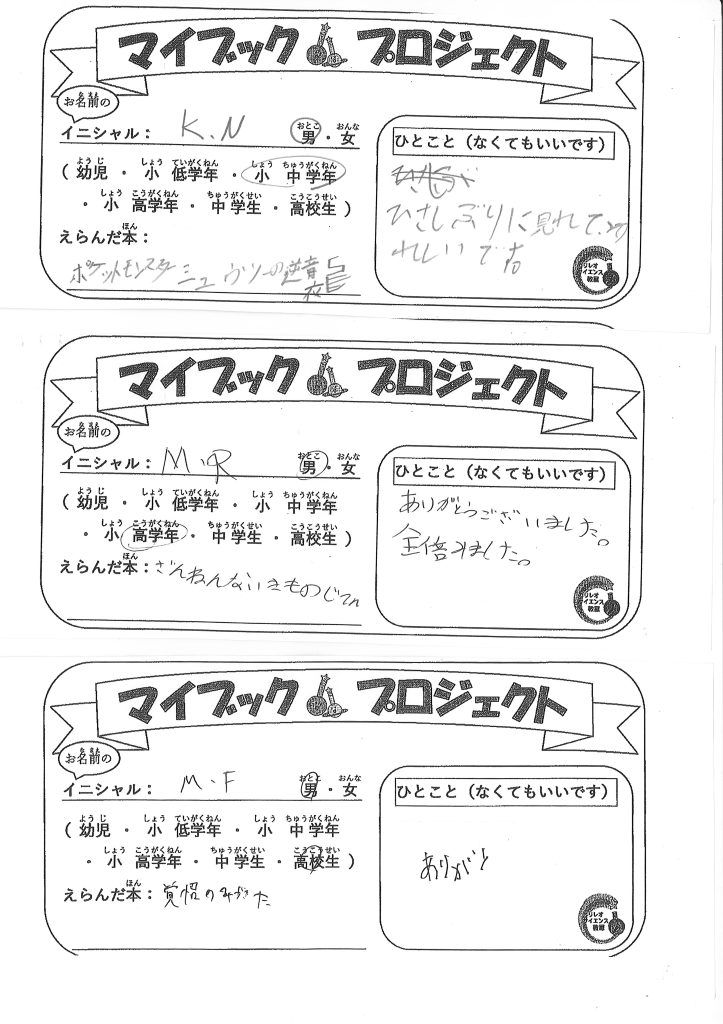 マイブック プロジェクト
お名前の
イニシャル： K.N 男・女
ひとこと（なくてもいいです）
（幼児 ・ 小 低学年 ・ 小 中学年
・ 小 高学年 ・ 中学生 ・ 高校生 ）
えらんだ本：
ポケットモンスター ミュウツーの逆
ひさしぶりに見れて
れしいです
マイブック プロジェクト
お名前の
イニシャル： M.R 男・女
ひとこと（なくてもいいです）
（幼児 ・ 小 低学年 ・ 小 中学年
・ 小 高学年 ・ 中学生 ・ 高校生 ）
えらんだ本：ざんねんないきものじてん
ありがとうございました。
ました。
マイブック プロジェクト
お名前の
イニシャル： M.F 男・女
ひとこと（なくてもいいです）
（幼児 ・ 小 低学年 ・ 小 中学年
・ 小 高学年 ・ 中学生 ・ 高校生 ）
えらんだ本：覚悟のみがきかた
ありがと